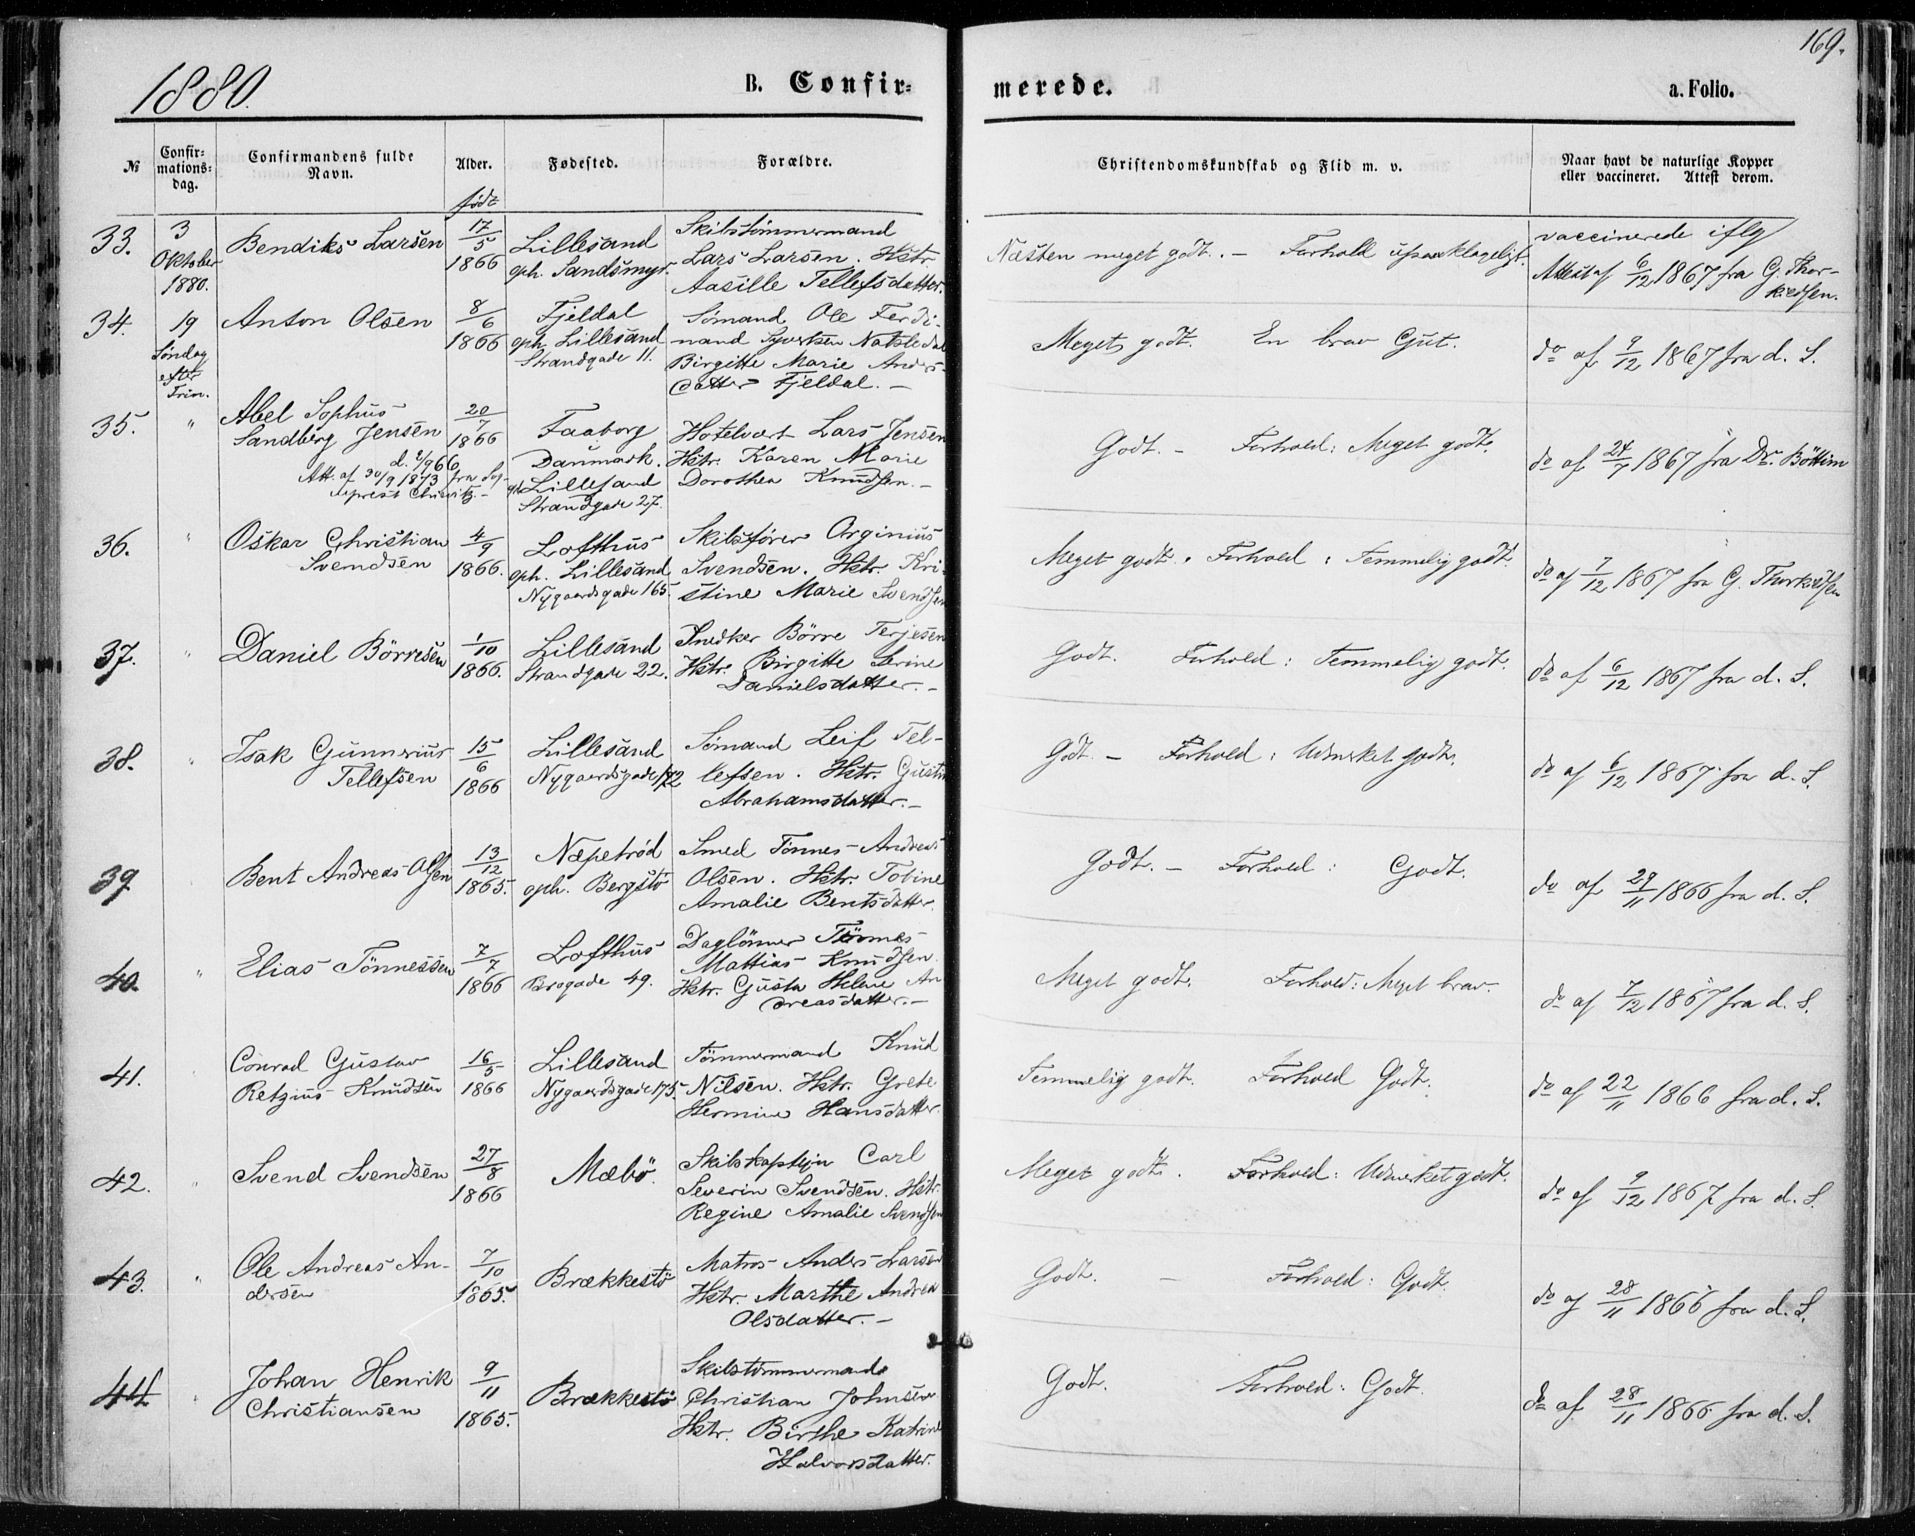 1880.
B. Confir-
merede.
a. Folio.
169.
№
Confir-
mations-
dag.
Confirmandens fulde
Navn.
Alder.
Fødested.
Forældre.
Christendomskundskab og Flid m. v.
Naar havt de naturlige Kopper
eller vaccineret. Attest derom.
født
33.
3
Oktober
1880.
Bendiks Larsen
17/5
1866
Lillesand
oph. Sandsmyr
Skibstømmermand
Lars Larsen. Hstr
Aasille Tellefsdatter.
Næsten meget godt. - Forhold upaaklageligt.
vaccinerede iflg
Attest af 6/12 1867 fra G. Thor-
kildsen.
34.
19
Søndag
efter
Trin.
Anton Olsen
8/6
1866
Fjeldal
oph. Lillesand
Strandgade 11.
Sømand Ole Ferdi-
nand Syvertsen
Birgitte Marie Anders-
datter Fjeldal. -
Meget godt. En brav Gut.
do af 9/12 1867 fra d. S.
35.
"
Abel Sophus
Sandberg Jensen
d. 2/9 66
Att. af 30/9 1873 fra Sog-
neprest
20/7
1866
Faaborg
Danmark.
Lillesand
Strandgade 27.
Hotelvert Lars Jensen
Hstr. Karen Marie
Dorothea Knudsen. -
Godt. - Forhold: Meget godt.
do af 24/7 1867 fra Dr. Böttim
36.
"
Oskar Christian
Svendsen
4/9
1866.
Lofthus
oph. Lillesand
Nygaardsgade 165.
Skibsfører Orginius
Svendsen. Hstr. Kri-
stine Marie Svendsen
Meget godt. Forhold: Temmelig godt.
do af 7/12 1867 fra G. Thorkildsen
37.
"
Daniel Börresen
1/10
1866.
Lillesand
Strandgade 22.
Snedker Börre Terjesen
Hstr. Birgitte Serine
Danielsdatter. -
Godt. Forhold: Temmelig godt.
do af 6/12 1867 fra d. S.
38.
"
Isak Gunnerius
Tellefsen
15/6
1866
Lillesand
Nygaardsgade 172
Sømand Leif Tel-
lefsen. Hstr. Gusta
Abrahamsdatter. -
Godt. - Forhold: Udmerket godt.
do af 6/12 1867 fra d. S.
39.
Bent Andreas Olsen
13/12
1865.
Næpetröd
oph. Bergstö
Smed Tönnes Andreas
Olsen. Hstr. Tobine
Amalie Bentsdatter.
Godt. - Forhold: Godt.
do af 29/11 1866 fra d. S.
40.
"
Elias Tönnessen
7/7
1866
Lofthus
Brogade 49.
Daglönner Tönnes
Mattias Knudsen.
Hstr. Gusta Helene An
dreasdatter. -
Meget godt. Forhold: Meget brav.
do af 7/12 1867 fra d. S.
41.
Conrad Gustav
Retzius Knudsen
16/5
1866
Lillesand
Nygaardsgade 175.
Tömmermand Knud
Nilsen. Hstr. Grete
Hermine Hansdatter.
Temmelig godt. Forhold Godt.
do af 22/11 1866 fra d. S.
42.
"
Svend Svendsen
27/8
1866
Mæbö.
Skibskaptejn Carl
Severin Svendsen. Hstr.
Regine Amalie Svendsen
Meget godt. Forhold: Udmerket godt.
do af 9/12 1867 fra d. S.
43.
"
Ole Andreas An-
dersen
7/10
1865.
Brækkestö
Matros Anders Larsen
Hstr. Marthe Andrea
Olsdatter. -
Godt. - Forhold: Godt.
do af 28/11 1866 fra d. S.
44.
"
Johan Henrik
Christiansen
9/11
1865.
Brækkestö
Skibstømmermand
Christian Johnsen
Hstr. Birthe Katrine
Halvorsdatter.
Godt. Forhold: Godt.
do af 28/11 1866 fra d. S.